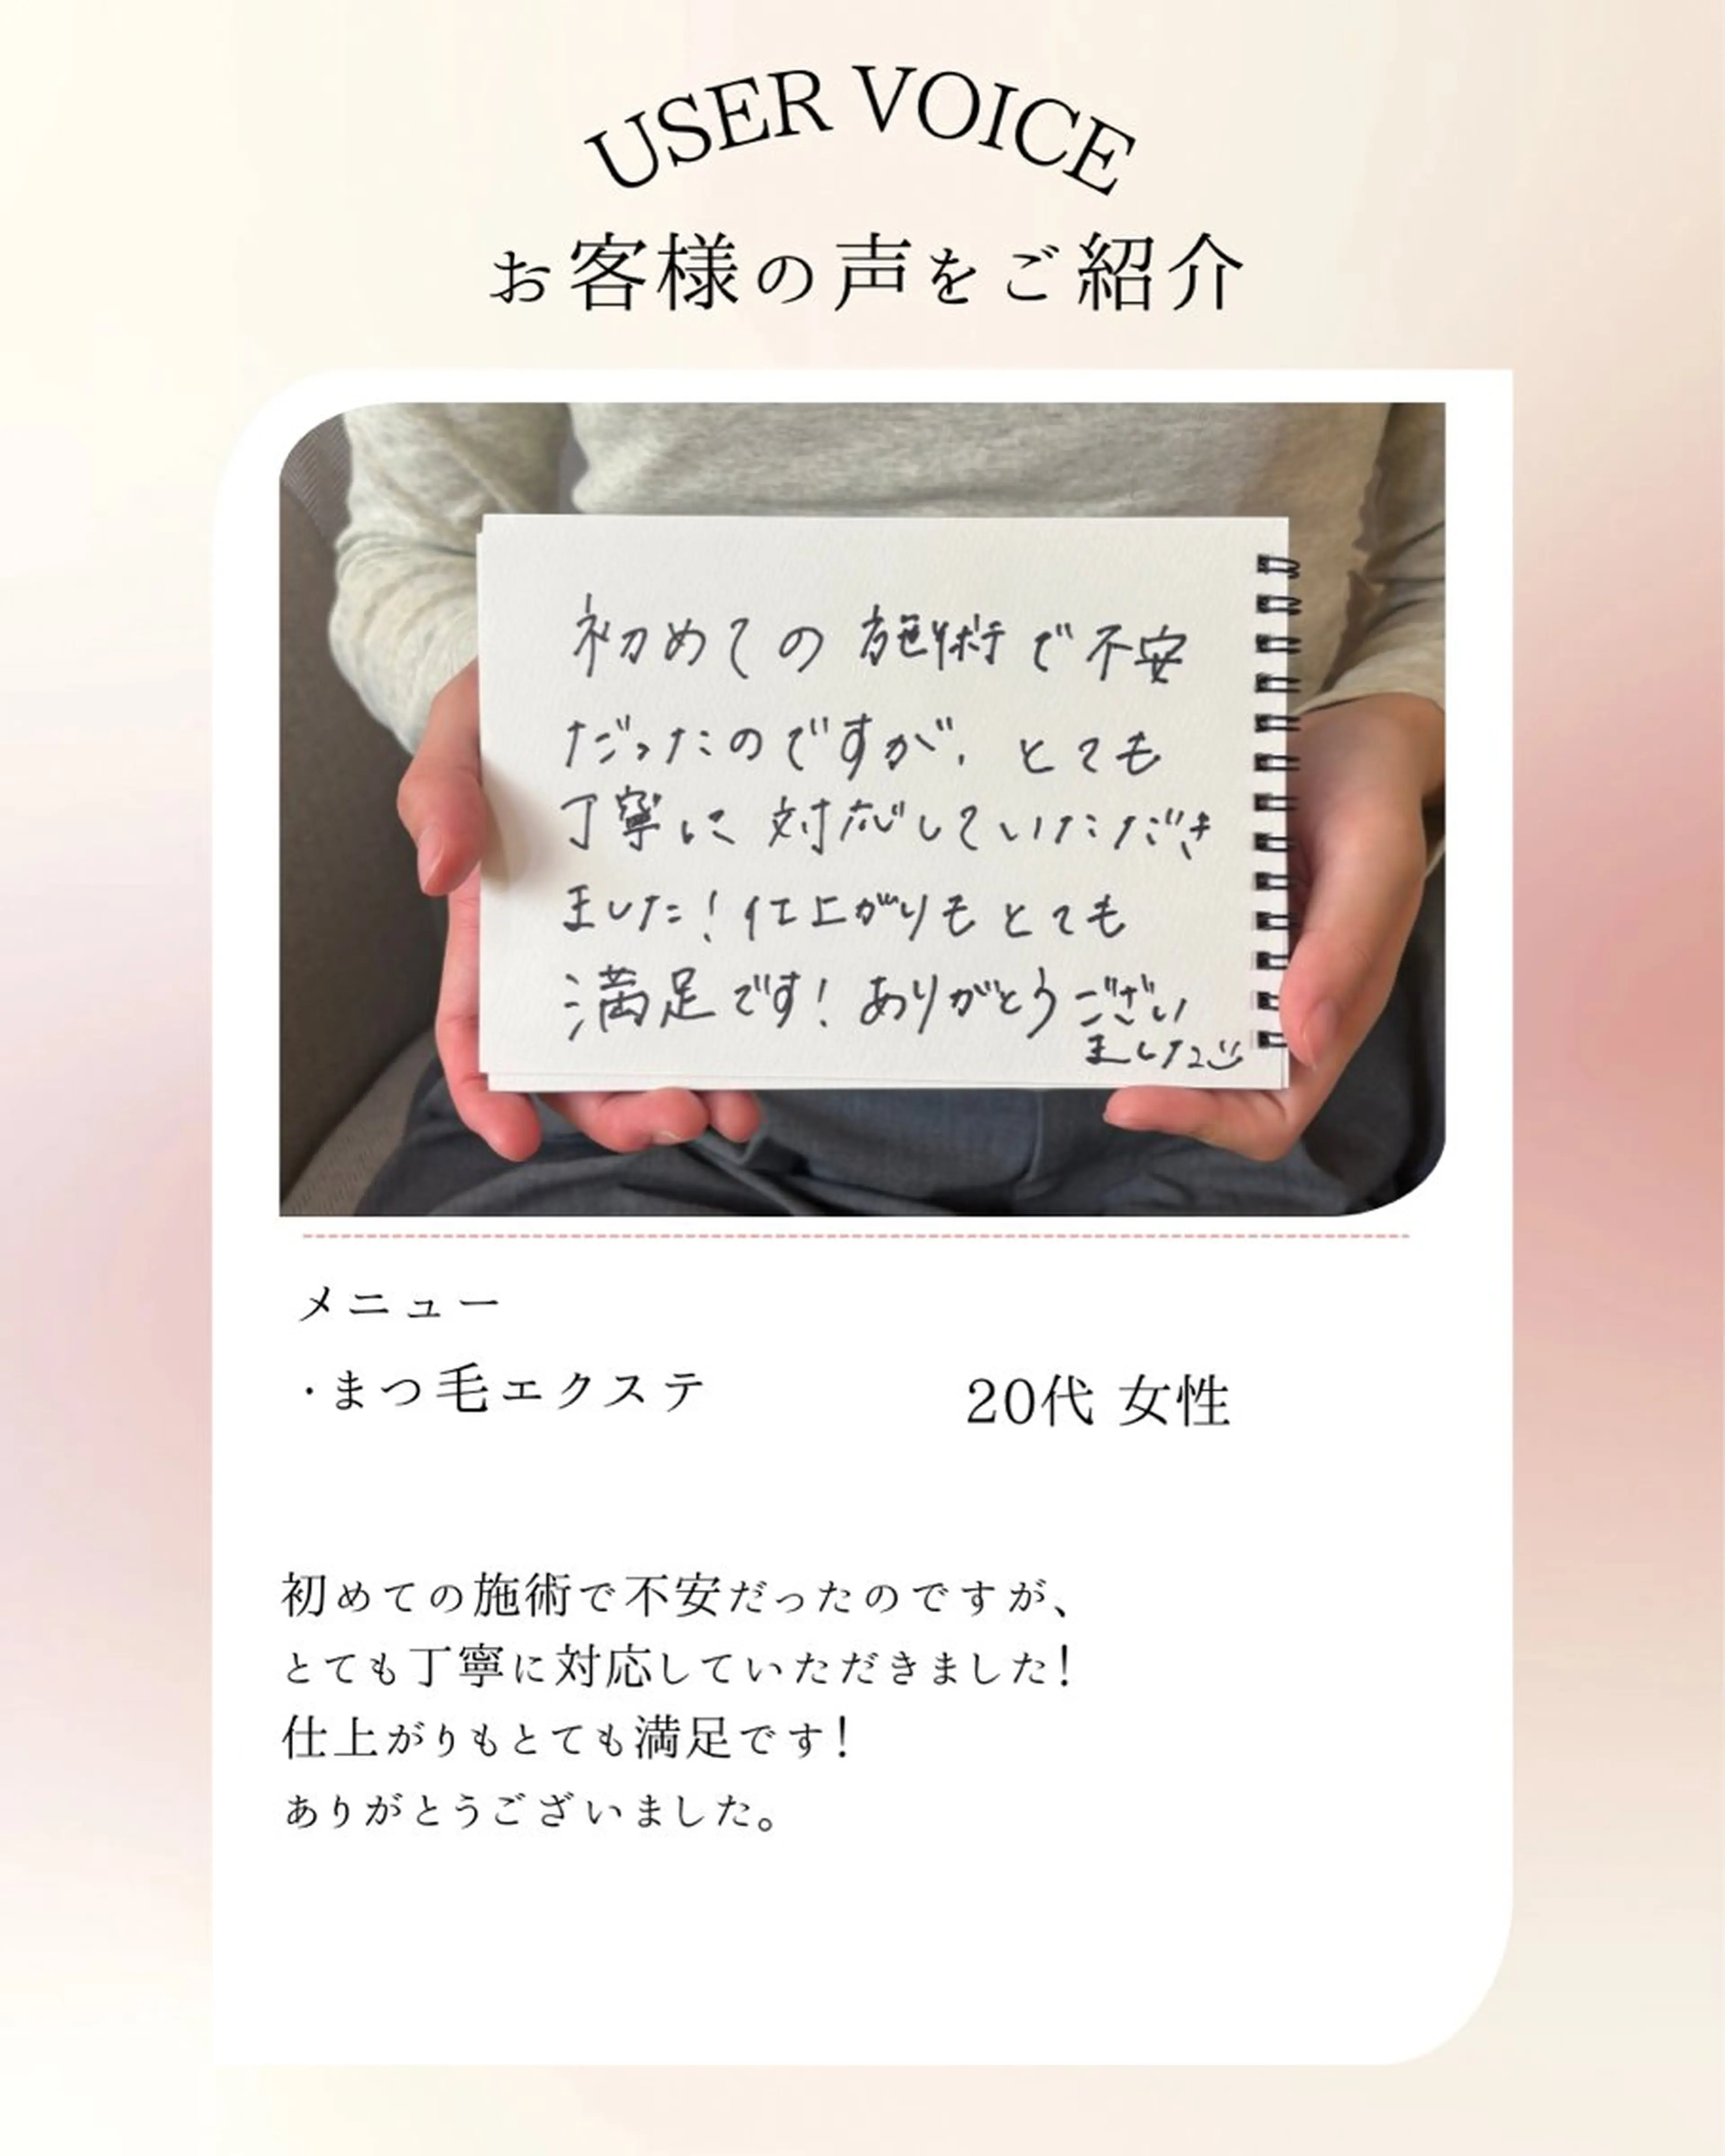 USER VOICE
お客様の声をご紹介
初めての施術で不安
だったのですが、とても
丁寧に対応していただき
ました！仕上がりもとても
満足です！ありがとうござい
ました
メニュー
・まつ毛エクステ
20代 女性
初めての施術で不安だったのですが、
とても丁寧に対応していただきました！
仕上がりもとても満足です！
ありがとうございました。